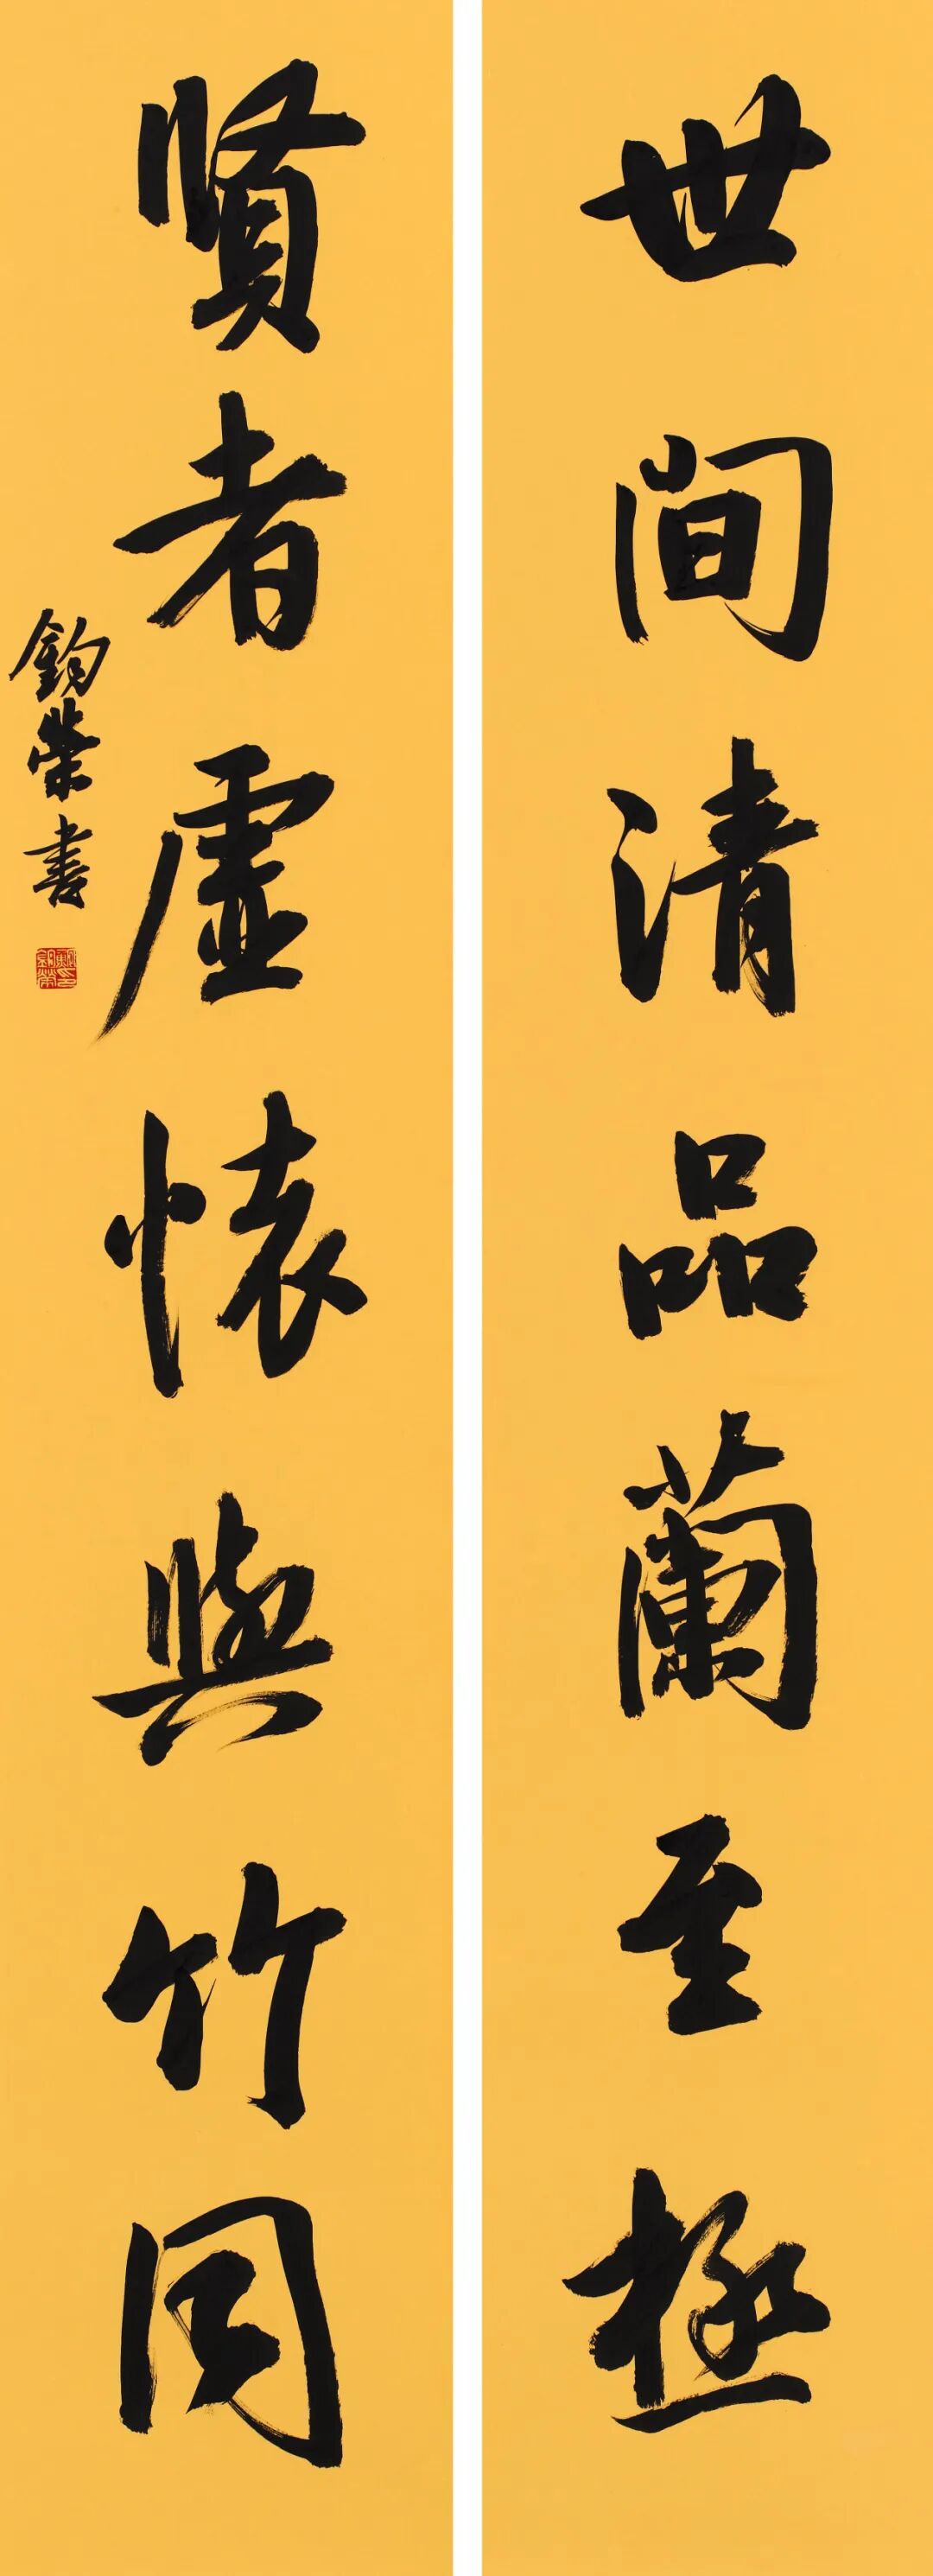 世间清品蘭至極
賢者虛懷與竹同
鈞榮書